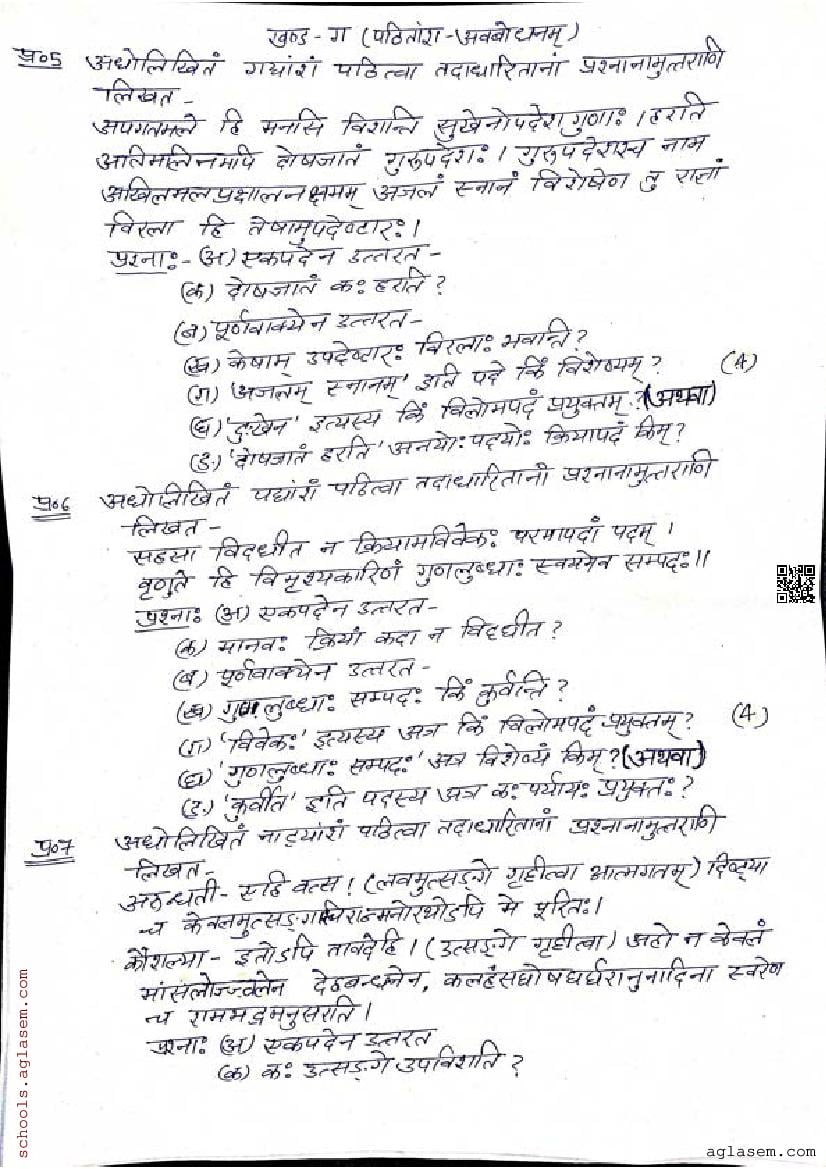 खण्ड-ग (पठितांश-अवबोधनम्)
प्र०5 अधोलिखितं गद्यांशं पठित्वा तदाधारितानां प्रश्नानामुत्तराणि
लिखत-
अपगतमले हि मनसि विशन्ति सुखेनोपदेशगुणाः। हरति
अतिमलिनमपि दोषजातं गुरूपदेशः। गुरूपदेशश्च नाम
अखिलमलप्रक्षालनक्षमम् अजलं स्नानं विशेषेण तु राज्ञां
विरला हि तेषामुपदेष्टारः।
प्रश्नाः- (अ) एकपदेन उत्तरत-
(क) दोषजातं कः हरति?
(ब) पूर्णवाक्येन उत्तरत-
(ख) केषाम् उपदेष्टारः विरलाः भवन्ति?
(ग) 'अजलम् स्नानम्' इति पदे किं विशेष्यम्? (4)
(घ) 'दुःखेन' इत्यस्य किं विलोमपदं प्रयुक्तम्? (अथवा)
(ङ) 'दोषजातं हरति' अनयोः पदयोः क्रियापदं किम्?
प्र०6 अधोलिखितं पद्यांशं पठित्वा तदाधारितानां प्रश्नानामुत्तराणि
लिखत-
सहसा विदधीत न क्रियामविवेकः परमापदां पदम्।
वृणुते हि विमृश्यकारिणं गुणलुब्धाः स्वयमेव सम्पदः।।
प्रश्नाः (अ) एकपदेन उत्तरत-
(क) मानवः क्रियां कदा न विदधीत?
(ब) पूर्णवाक्येन उत्तरत-
(ख) गुणलुब्धाः सम्पदः किं कुर्वन्ति?
(ग) 'विवेकः' इत्यस्य अत्र किं विलोमपदं प्रयुक्तम्? (4)
(घ) 'गुणलुब्धाः सम्पदः' अत्र विशेष्यं किम्? (अथवा)
(ङ) 'कुर्वीत' इति पदस्य अत्र कः पर्यायः प्रयुक्तः?
प्र०7 अधोलिखितं नाट्यांशं पठित्वा तदाधारितानां प्रश्नानामुत्तराणि
लिखत-
अरुन्धती- एहि वत्स! (लवमुत्सङ्गे गृहीत्वा आत्मगतम्) दिष्ट्या
न केवलमुत्सङ्गश्चिरान्मनोरथोऽपि मे पूरितः।
कौशल्या- इतोऽपि तावदेहि। (उत्सङ्गे गृहीत्वा) अहो न केवलं
मांसलोज्ज्वलेन देहबन्धनेन, कलहंसघोषघर्घरानुनादिना स्वरेण
च रामभद्रमनुसरति।
प्रश्नाः (अ) एकपदेन उत्तरत
(क) कः उत्सङ्गे उपविशति?
schools.aglasem.com
aglasem.com